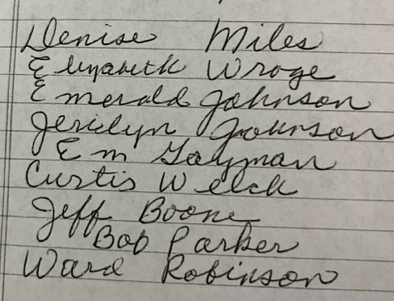 Denise Miles
Elizabeth Wroge
Emerald Johnson
Jerilyn Johnson
Em Gayman
Curtis Welch
Jeff Boone
Bob Parker
Ward Robinson